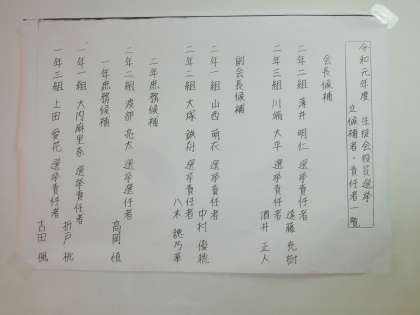 令和元年度 生徒会役員選挙
立候補者・責任者一覧
会長候補
二年二組 薄井 明仁 選挙責任者 遠藤 充樹
二年三組 川端 大平 選挙責任者 酒井 正人
副会長候補
二年一組 山西 萌衣 選挙責任者 中村 優
二年二組 大塚 誠舟 選挙責任者 八木 穂乃華
二年庶務候補
二年二組 渡部 亮太 選挙責任者 高岡 慎
一年庶務候補
一年一組 大内麻里奈 選挙責任者 折戸 桃
一年三組 上田 愛花 選挙責任者 吉田 楓